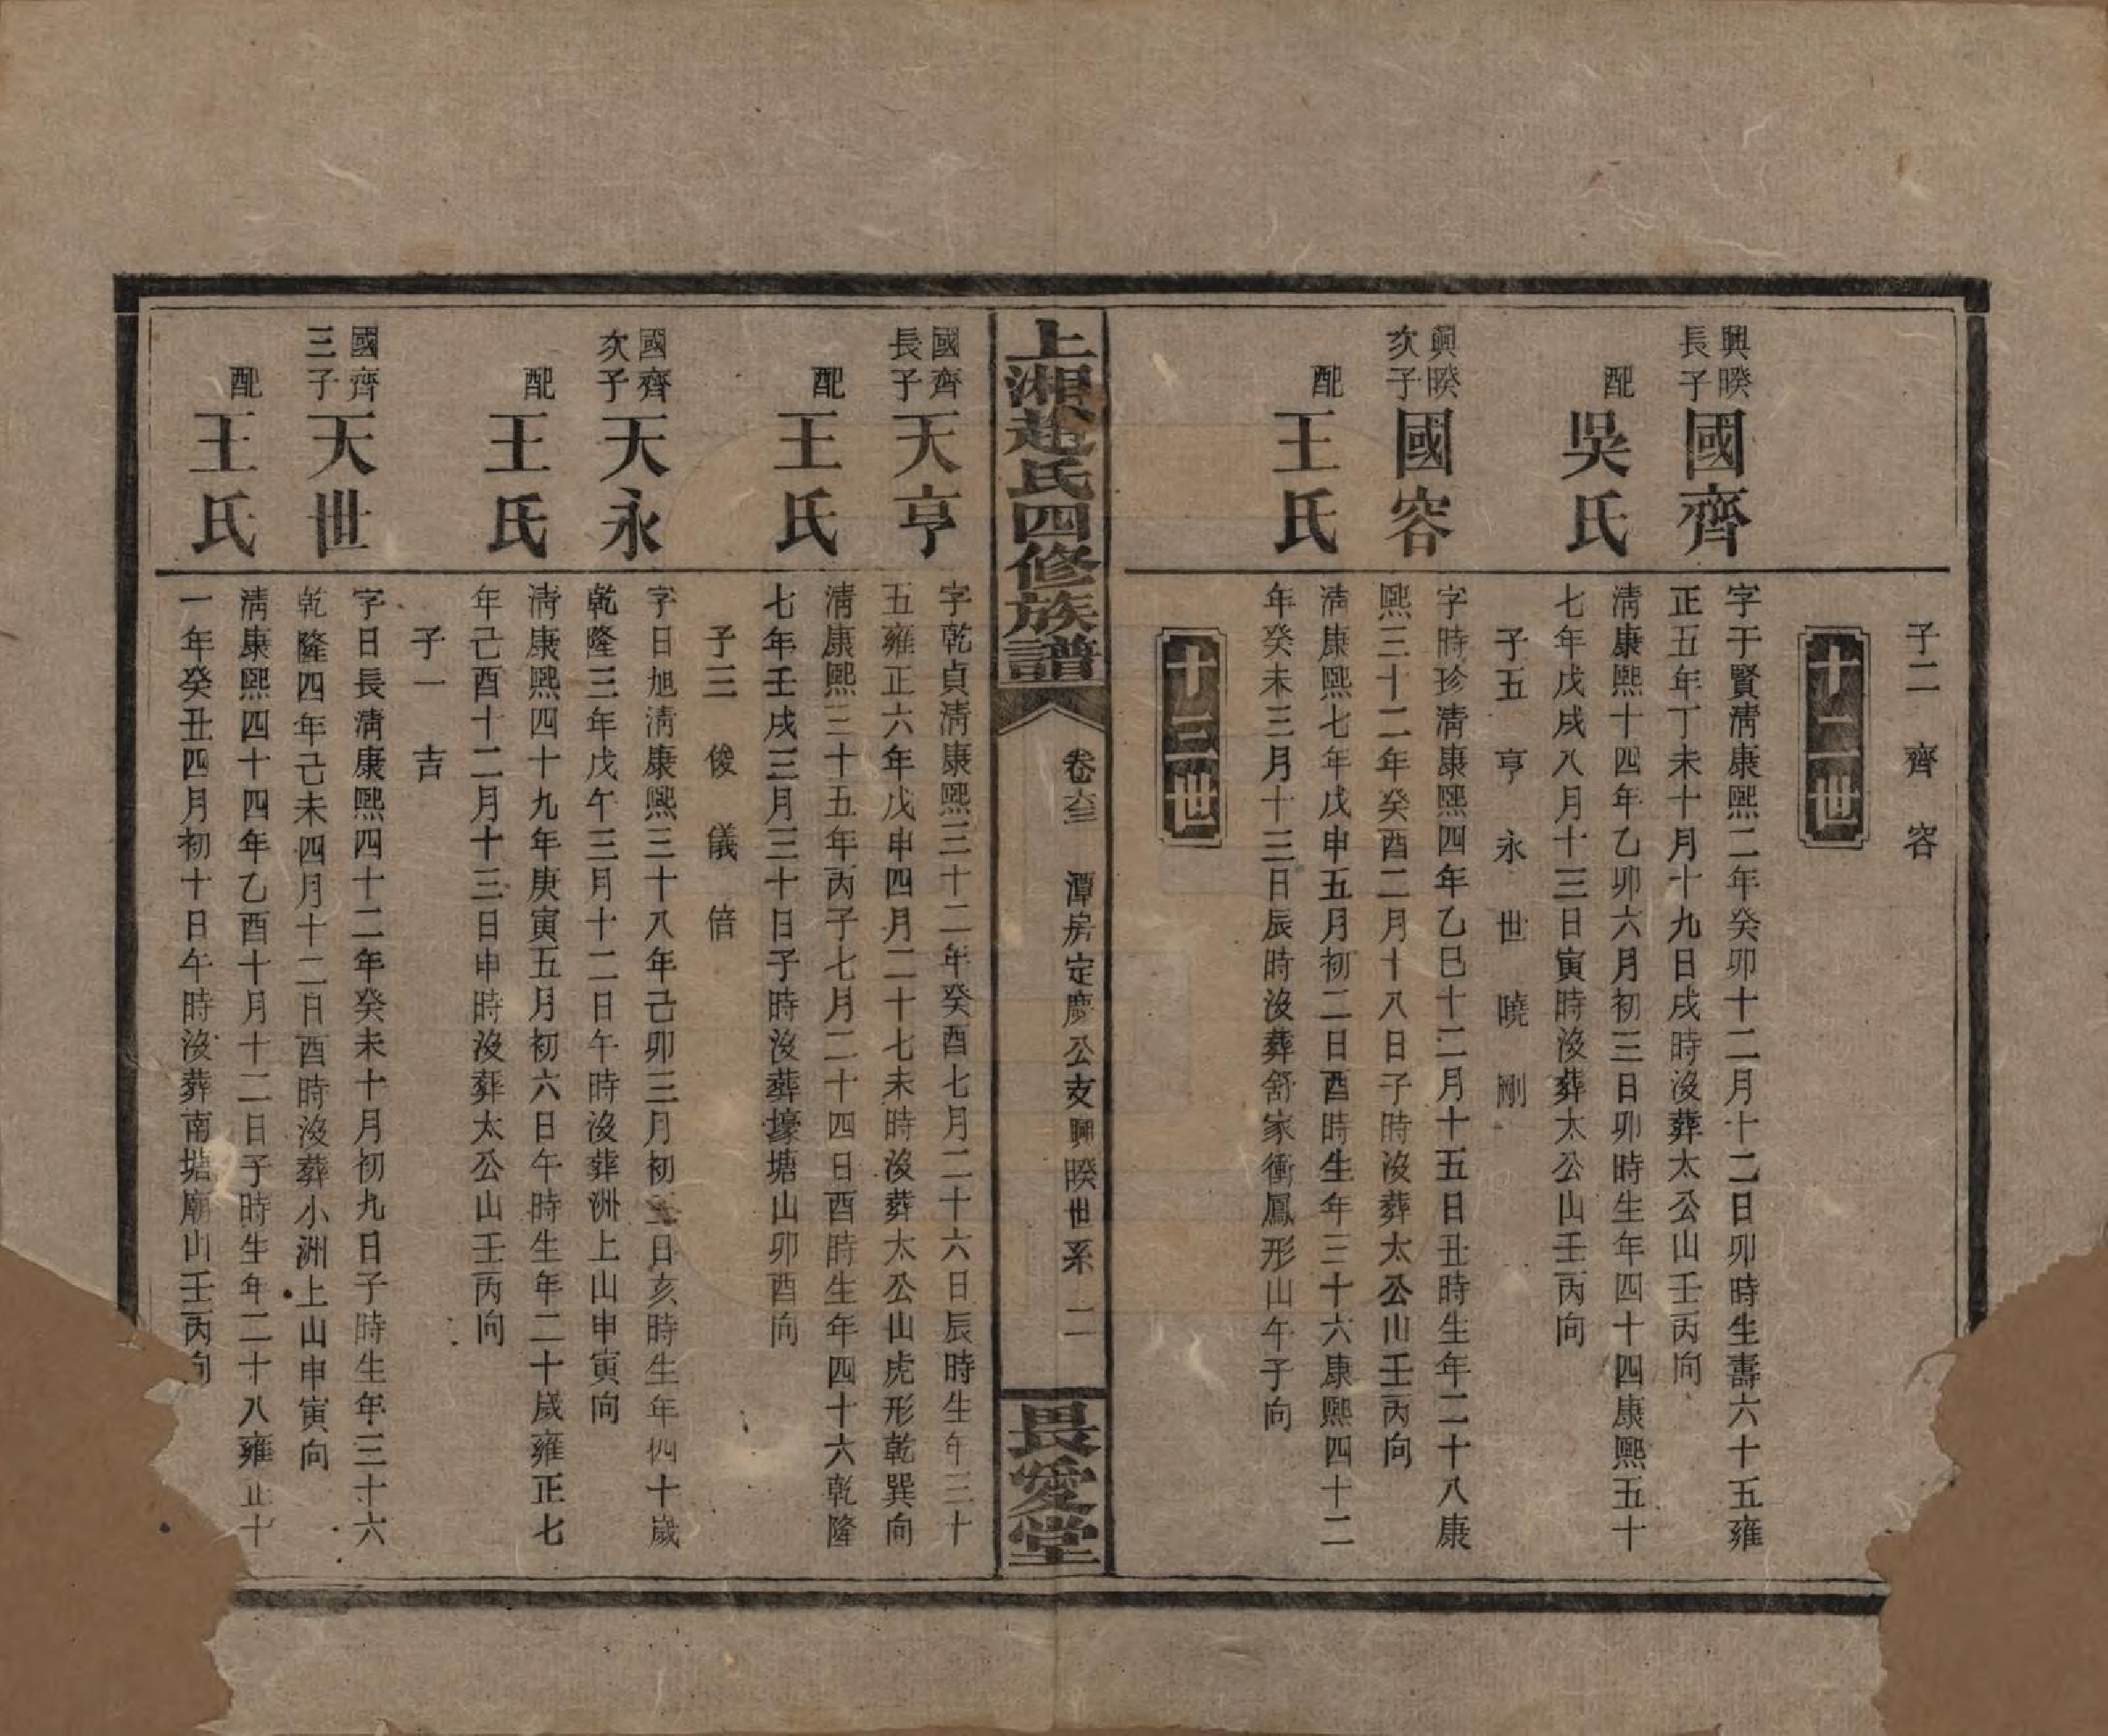 子二　齊　容
十二世
興暌長子　國齊
字于賢淸康熙二年癸卯十二月十二日卯時生壽六十五雍
正五年丁未十月十九日戌時沒葬太公山壬丙向
配　吳氏
淸康熙十四年乙卯六月初三日卯時生年四十四康熙五十
七年戊戌八月十三日寅時沒葬太公山壬丙向
子五　亨　永　世　曉　剛
興暌次子　國容
字時珍淸康熙四年乙巳十二月十五日丑時生年二十八康
熙三十二年癸酉二月十八日子時沒葬太公山壬丙向
配　王氏
淸康熙七年戊申五月初二日酉時生年三十六康熙四十二
年癸未三月十三日辰時沒葬舒家衝鳳形山午子向
十三世
上湘趙氏四修族譜
卷六三　潭房定慶公支興暌世系　二
畏愛堂
國齊長子　天亨
字乾貞淸康熙三十二年癸酉七月二十六日辰時生年三十
五雍正六年戊申四月二十七未時沒葬太公山虎形乾巽向
配　王氏
淸康熙三十五年丙子七月二十四日酉時生年四十六乾隆
七年壬戌三月三十日子時沒葬壕塘山卯酉向
子三　俊　儀　倍
國齊次子　天永
字日旭淸康熙三十八年己卯三月初三日亥時生年四十歲
乾隆三年戊午三月十二日午時沒葬洲上山申寅向
配　王氏
淸康熙四十九年庚寅五月初六日午時生年二十歲雍正七
年己酉十二月十三日申時沒葬太公山壬丙向
子一　吉
國齊三子　天世
字日長淸康熙四十二年癸未十月初九日子時生年三十六
乾隆四年己未四月十二日酉時沒葬小洲上山申寅向
配　王氏
淸康熙四十四年乙酉十月十二日子時生年二十八雍正十
一年癸丑四月初十日午時沒葬南塘廟山壬丙向